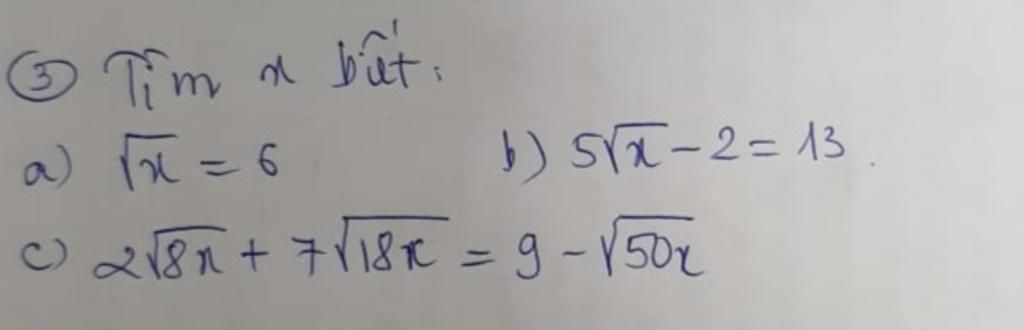 ③ Tìm x biết:
a) √x = 6 b) 5√x - 2 = 13.
c) 2√8x + 7√18x = 9 - √50x